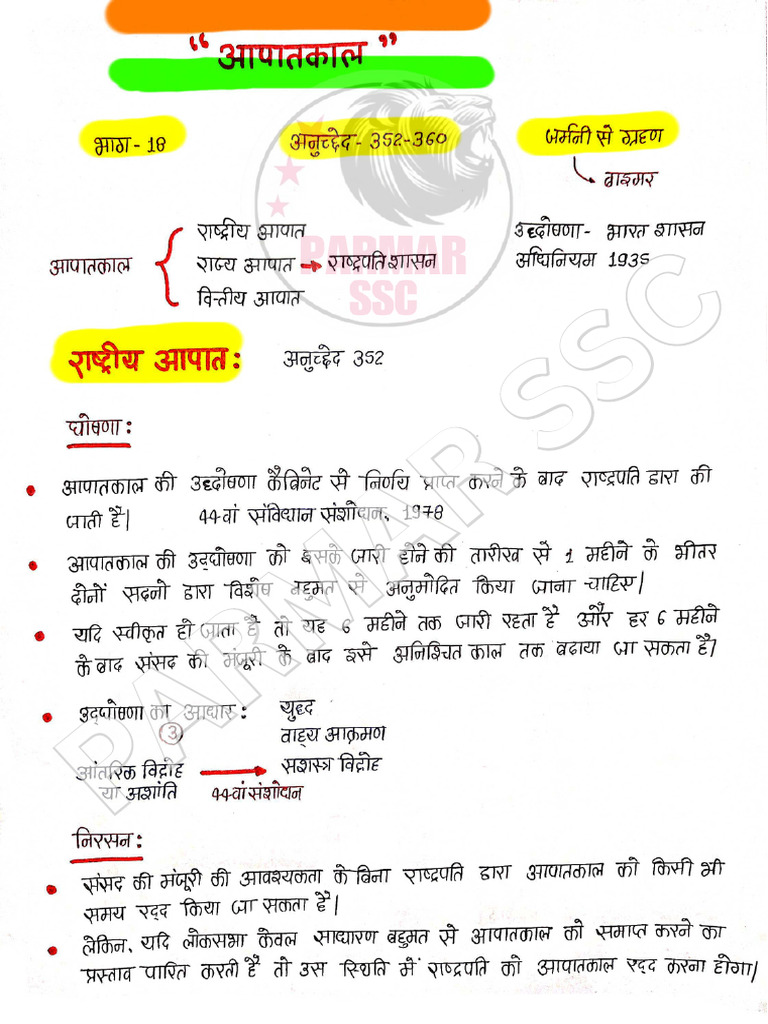 “ आपातकाल ”
भाग - 18
अनुच्छेद - 352-360
जर्मनी से ग्रहण
वाइमर
आपातकाल
राष्ट्रीय आपात
राज्य आपात → राष्ट्रपति शासन
वित्तीय आपात
उद्घोषणा - भारत शासन
अधिनियम 1935
PARMAR
SSC
राष्ट्रीय आपात: अनुच्छेद 352
घोषणा:
• आपातकाल की उद्घोषणा कैबिनेट से निर्णय प्राप्त करने के बाद राष्ट्रपति द्वारा की
जाती है। 44वां संविधान संशोधन, 1978
• आपातकाल की उद्घोषणा को इसके जारी होने की तारीख से 1 महीने के भीतर
दोनों सदनो द्वारा विशेष बहुमत से अनुमोदित किया जाना चाहिए।
• यदि स्वीकृत हो जाता है तो यह 6 महीने तक जारी रहता है और हर 6 महीने
के बाद संसद की मंजूरी के बाद इसे अनिश्चित काल तक बढाया जा सकता है।
• उद्घोषणा का आधार: युद्ध
③ वाह्य आक्रमण
आंतरिक विद्रोह → सशस्त्र विद्रोह
या अशांति 44वां संशोदान
निरसन:
• संसद की मंजूरी की आवश्यकता के बिना राष्ट्रपति द्वारा आपातकाल को किसी भी
समय रद्द किया जा सकता है।
• लेकिन, यदि लोकसभा केवल साधारण बहुमत से आपातकाल को समाप्त करने का
प्रस्ताव पारित करती है तो उस स्थिति में राष्ट्रपति को आपातकाल रद्द करना होगा।
PARMAR SSC